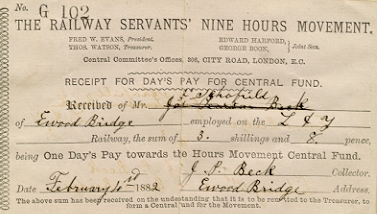 No. G 102
THE RAILWAY SERVANTS' NINE HOURS MOVEMENT.
FRED W. EVANS, President. EDWARD HARFORD,
THOS. WATSON, Treasurer. GEORGE BOON, Joint Secs.
Central Committee's Offices: 306, CITY ROAD, LONDON, E.C.
RECEIPT FOR DAY'S PAY FOR CENTRAL FUND.
Schofield
Received of Mr. Beck
of Ewood Bridge employed on the L & Y
Railway, the sum of 3. shillings and 8, pence,
being One Day's Pay towards the Hours Movement Central Fund.
J P Beck Collector.
Date February 1882 Ewood Bridge Address.
The above sum has been received on the understanding that it is to be remitted to the Treasurer, to
form a Central Fund for the Movement.